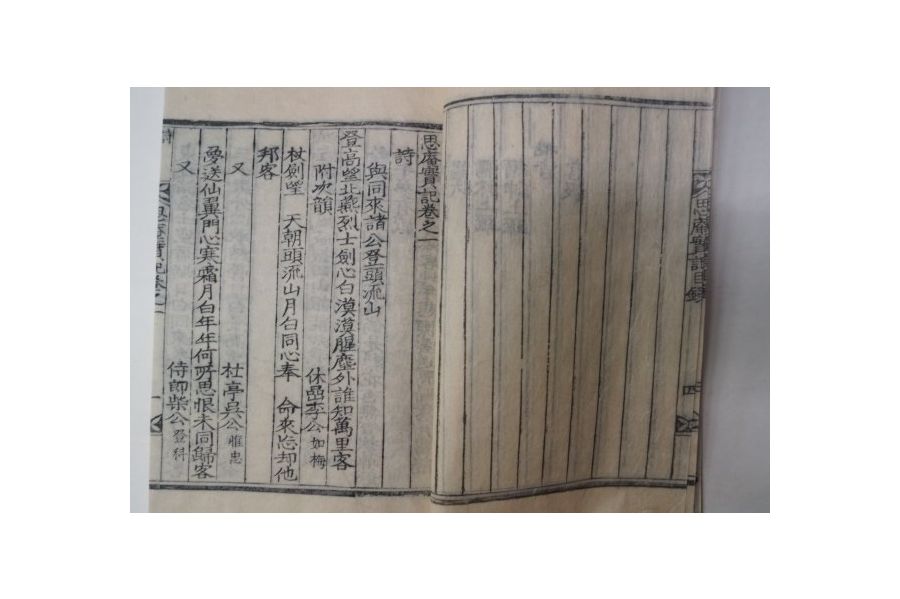 思庵實記目錄
四
思庵實記卷之一
詩
與同來諸公登頭流山
登高望北燕烈士劍心白漠漠腥塵外誰知萬里客
附次韻 休嵒李公如梅
杖劍望 天朝頭流山月白同心奉 命來忘却他
邦客
又 杜亭吳公惟忠
夢送仙翼門心寒霜月白年年何所思恨未同歸客
又 侍郎柴公登科
思庵實記卷之一
一